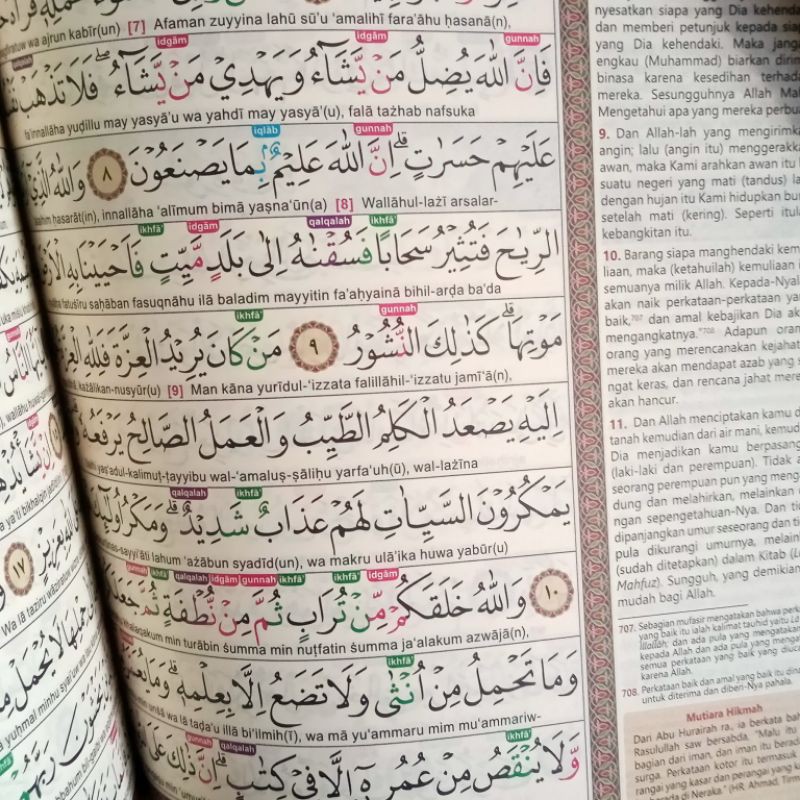 ajrun kabīr(un) [7] Afaman zuyyina lahū sū'u 'amalihī fara'āhu ḥasanā(n),
idgām idgām gunnah
فَإِنَّ اللّٰهَ يُضِلُّ مَنْ يَّشَاۤءُ وَيَهْدِيْ مَنْ يَّشَاۤءُۖ فَلَا تَذْهَبْ
fa'innallāha yuḍillu may yasyā'u wa yahdī may yasyā'(u), falā tażhab nafsuka
iqlāb gunnah
عَلَيْهِمْ حَسَرٰتٍۗ اِنَّ اللّٰهَ عَلِيْمٌۢ بِمَا يَصْنَعُوْنَ ٨ وَاللّٰهُ الَّذِيْٓ
ḥasarāt(in), innallāha 'alīmum bimā yaṣna'ūn(a) [8] Wallāhul-lażī arsalar-
ikhfā' idgām qalqalah ikhfā'
الرِّيٰحَ فَتُثِيْرُ سَحَابًا فَسُقْنٰهُ اِلٰى بَلَدٍ مَّيِّتٍ فَاَحْيَيْنَا بِهِ الْاَرْضَ
fatuṡīru saḥāban fasuqnāhu ilā baladim mayyitin fa'aḥyainā bihil-arḍa ba'da
ikhfā' gunnah
مَوْتِهَاۗ كَذٰلِكَ النُّشُوْرُ ٩ مَنْ كَانَ يُرِيْدُ الْعِزَّةَ فَلِلّٰهِ الْعِزَّةُ
każālikan-nusyūr(u) [9] Man kāna yurīdul-'izzata falillāhil-'izzatu jamī'ā(n),
اِلَيْهِ يَصْعَدُ الْكَلِمُ الطَّيِّبُ وَالْعَمَلُ الصَّالِحُ يَرْفَعُهٗ
yaṣ'adul-kalimuṭ-ṭayyibu wal-'amaluṣ-ṣāliḥu yarfa'uh(ū), wal-lażīna
qalqalah ikhfā'
يَمْكُرُوْنَ السَّيِّاٰتِ لَهُمْ عَذَابٌ شَدِيْدٌۗ وَمَكْرُ اُولٰۤىِٕكَ
sayyi'āti lahum 'ażābun syadīd(un), wa makru ulā'ika huwa yabūr(u)
gunnah ikhfā' qalqalah idgām gunnah ikhfā' ikhfā' idgām
١٠ وَاللّٰهُ خَلَقَكُمْ مِّنْ تُرَابٍ ثُمَّ مِنْ نُّطْفَةٍ ثُمَّ جَعَلَكُمْ
khalaqakum min turābin ṡumma min nuṭfatin ṡumma ja'alakum azwājā(n),
ikhfā'
وَمَا تَحْمِلُ مِنْ اُنْثٰى وَلَا تَضَعُ اِلَّا بِعِلْمِهٖۗ وَمَا يُعَمَّرُ
unṡā wa lā taḍa'u illā bi'ilmih(ī), wa mā yu'ammaru mim mu'ammariw-
gunnah qalqalah ikhfā'
وَّلَا يُنْقَصُ مِنْ عُمُرِهٖٓ اِلَّا فِيْ كِتٰبٍۗ اِنَّ ذٰلِكَ عَلَى
١٧
nyesatkan siapa yang Dia kehendaki
dan memberi petunjuk kepada siapa
yang Dia kehendaki. Maka jangan
engkau (Muhammad) biarkan dirimu
binasa karena kesedihan terhadap
mereka. Sesungguhnya Allah Maha
Mengetahui apa yang mereka perbuat.
9. Dan Allah-lah yang mengirimkan
angin; lalu (angin itu) menggerakkan
awan, maka Kami arahkan awan itu
suatu negeri yang mati (tandus) lalu
dengan hujan itu Kami hidupkan bumi
setelah mati (kering). Seperti itulah
kebangkitan itu.
10. Barang siapa menghendaki kemu-
liaan, maka (ketahuilah) kemuliaan itu
semuanya milik Allah. Kepada-Nyalah
akan naik perkataan-perkataan yang
baik,⁷⁰⁷ dan amal kebajikan Dia akan
mengangkatnya.⁷⁰⁸ Adapun orang-
orang yang merencanakan kejahatan
mereka akan mendapat azab yang sa-
ngat keras, dan rencana jahat mereka
akan hancur.
11. Dan Allah menciptakan kamu dari
tanah kemudian dari air mani, kemudian
Dia menjadikan kamu berpasangan
(laki-laki dan perempuan). Tidak ada
seorang perempuan pun yang mengan-
dung dan melahirkan, melainkan de-
ngan sepengetahuan-Nya. Dan tidak
dipanjangkan umur seseorang dan tidak
pula dikurangi umurnya, melainkan
(sudah ditetapkan) dalam Kitab (Lauh
Mahfuz). Sungguh, yang demikian
mudah bagi Allah.
707. Sebagian mufasir mengatakan bahwa perkataan
yang baik itu ialah kalimat tauhid yaitu
illallah; dan ada pula yang mengatakan
kepada Allah dan ada pula yang mengatakan
semua perkataan yang baik yang diucapkan
karena Allah.
708. Perkataan baik dan amal yang baik itu
untuk diterima dan diberi-Nya pahala.
Mutiara Hikmah
Dari Abu Hurairah ra., ia berkata bahwa
Rasulullah saw bersabda, "Malu itu
bagian dari iman, dan iman itu berada
surga. Perkataan kotor itu termasuk
rangai yang kasar dan perangai yang kasar
berada di Neraka." (HR. Ahmad,